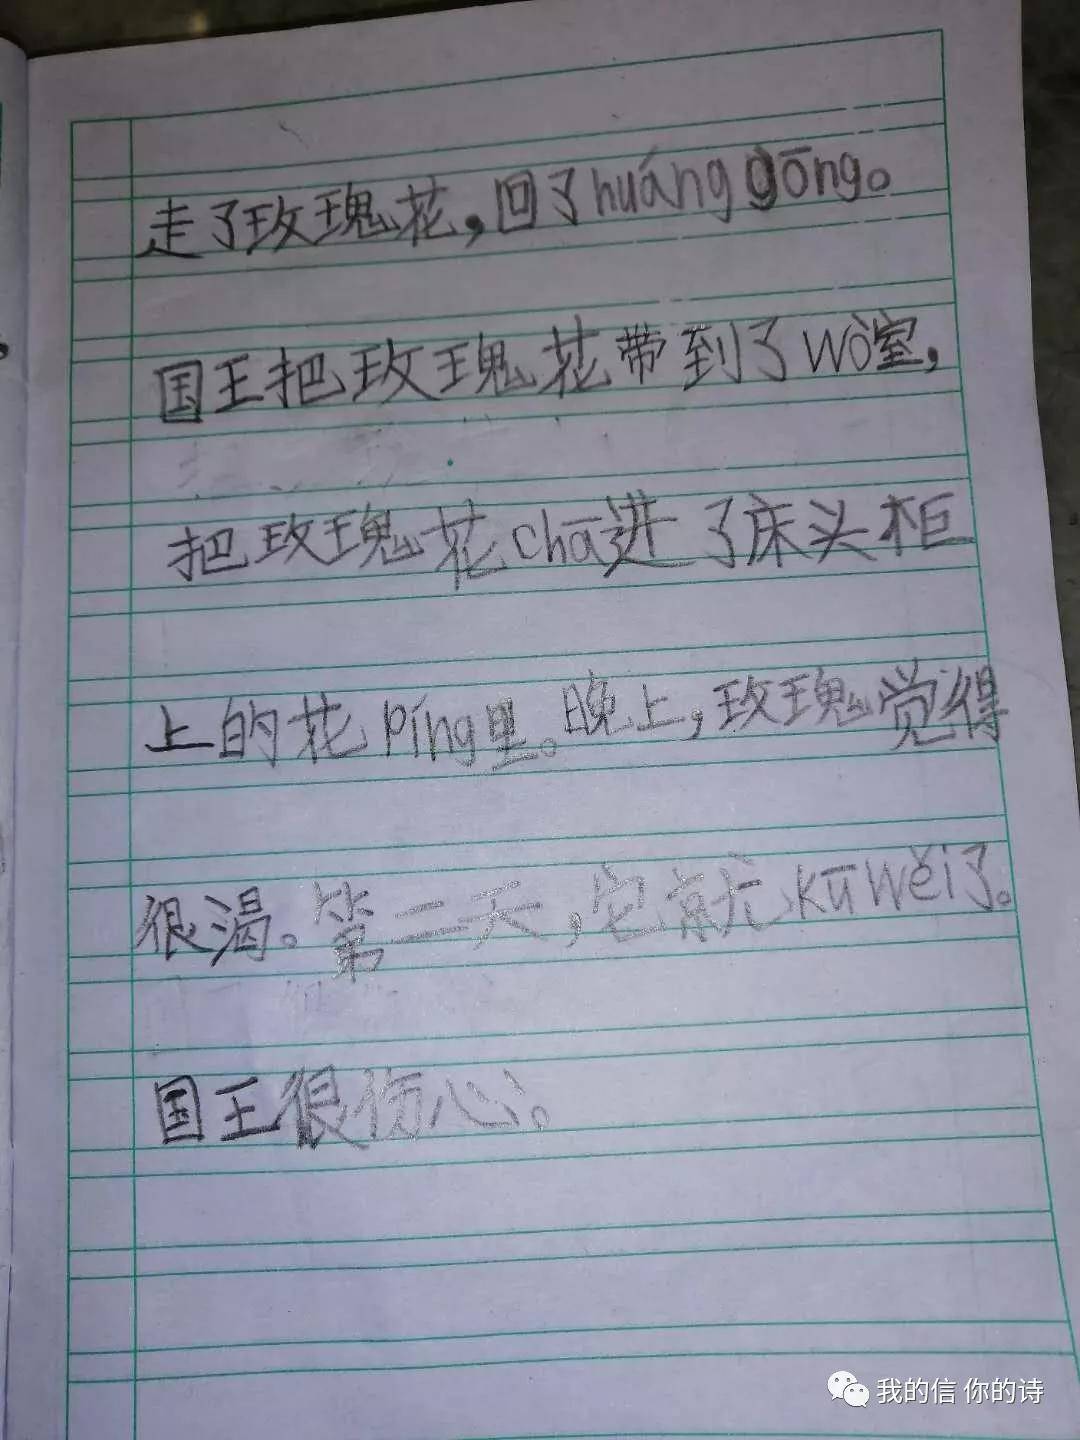 走了玫瑰花，回了huánggōng。
国王把玫瑰花带到了wò室，
把玫瑰花chā进了床头柜
上的花píng里。晚上，玫瑰觉得
很渴。第二天，它就kūwěi了。
国王很伤心。
我的信 你的诗